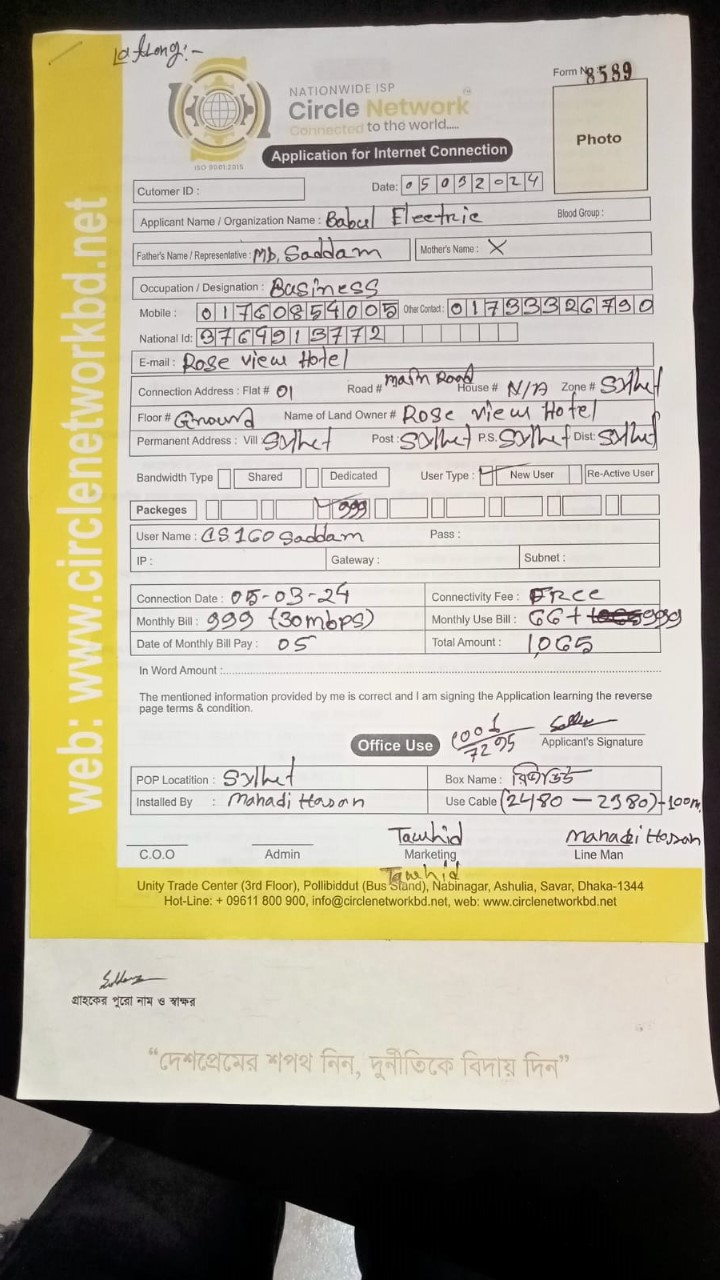 Lat Long:-
Form No 8589
NATIONWIDE ISP
Circle Network
Connected to the world....
ISO 9001:2015
Photo
Application for Internet Connection
Cutomer ID :
Date: 05032024
Applicant Name / Organization Name : Babul Electric Blood Group :
Father's Name / Representative : Md, Saddam Mother's Name : X
Occupation / Designation : Business
Mobile : 01760854005 Other Contact : 01733326790
National Id: 3769913772
E-mail : Rose view Hotel
Connection Address : Flat # 01 Road # main Road House # N/A Zone # Sylhet
Floor # Ground Name of Land Owner # Rose view Hotel
Permanent Address : Vill : Sylhet Post : Sylhet P.S. Sylhet Dist: Sylhet
Bandwidth Type Shared Dedicated User Type : New User Re-Active User
Packeges 999
User Name : CS.160 Saddam Pass :
IP : Gateway : Subnet :
Connection Date : 05-03-24 Connectivity Fee : FRee
Monthly Bill : 999 (30mbps) Monthly Use Bill : 66+ 999
Date of Monthly Bill Pay : 05 Total Amount : 1,065
In Word Amount :
The mentioned information provided by me is correct and I am signing the Application learning the reverse
page terms & condition.
Office Use 7295
Applicant's Signature
POP Locatition : Sylhet Box Name :
Installed By : Mahadi Hasan Use Cable (2480 – 2380)-100m
Tawhid Mahadi Hassan
C.O.O Admin Marketing Line Man
Tawhid
Unity Trade Center (3rd Floor), Pollibiddut (Bus Stand), Nabinagar, Ashulia, Savar, Dhaka-1344
Hot-Line: + 09611 800 900, info@circlenetworkbd.net, web: www.circlenetworkbd.net
web: www.circlenetworkbd.net
গ্রাহকের পুরো নাম ও স্বাক্ষর
“দেশপ্রেমের শপথ নিন, দুর্নীতিকে বিদায় দিন”